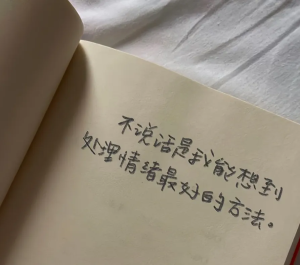 不说话是我能想到
处理情绪最好的方法。